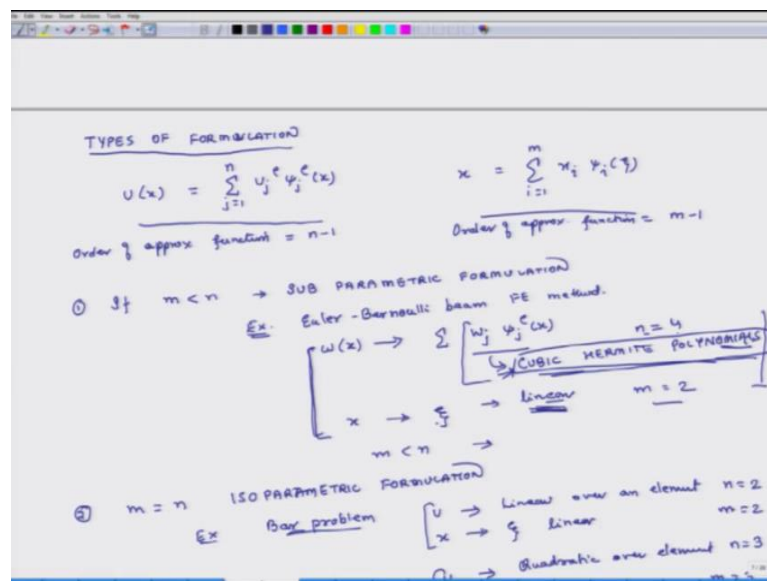 Edit View Insert Actions Tools Help
TYPES OF FORMULATION
U(x) = Σ_{j=1}^{n} U_j^e ψ_j^e(x)
x = Σ_{i=1}^{m} x_i ψ_i(ξ)
Order of approx function = n-1
Order of approx. function = m-1
① If m < n → SUB PARAMETRIC FORMULATION
Ex. Euler-Bernoulli beam FE method.
w(x) → Σ [w_j ψ_j^e(x) n = 4
↳ CUBIC HERMITE POLYNOMIALS]
x → ξ → linear m = 2
m < n →
② m = n ISO PARAMETRIC FORMULATION
Ex Bar problem [U → Linear over an element n=2
x → ξ linear m=2
→ Quadratic over element n=3